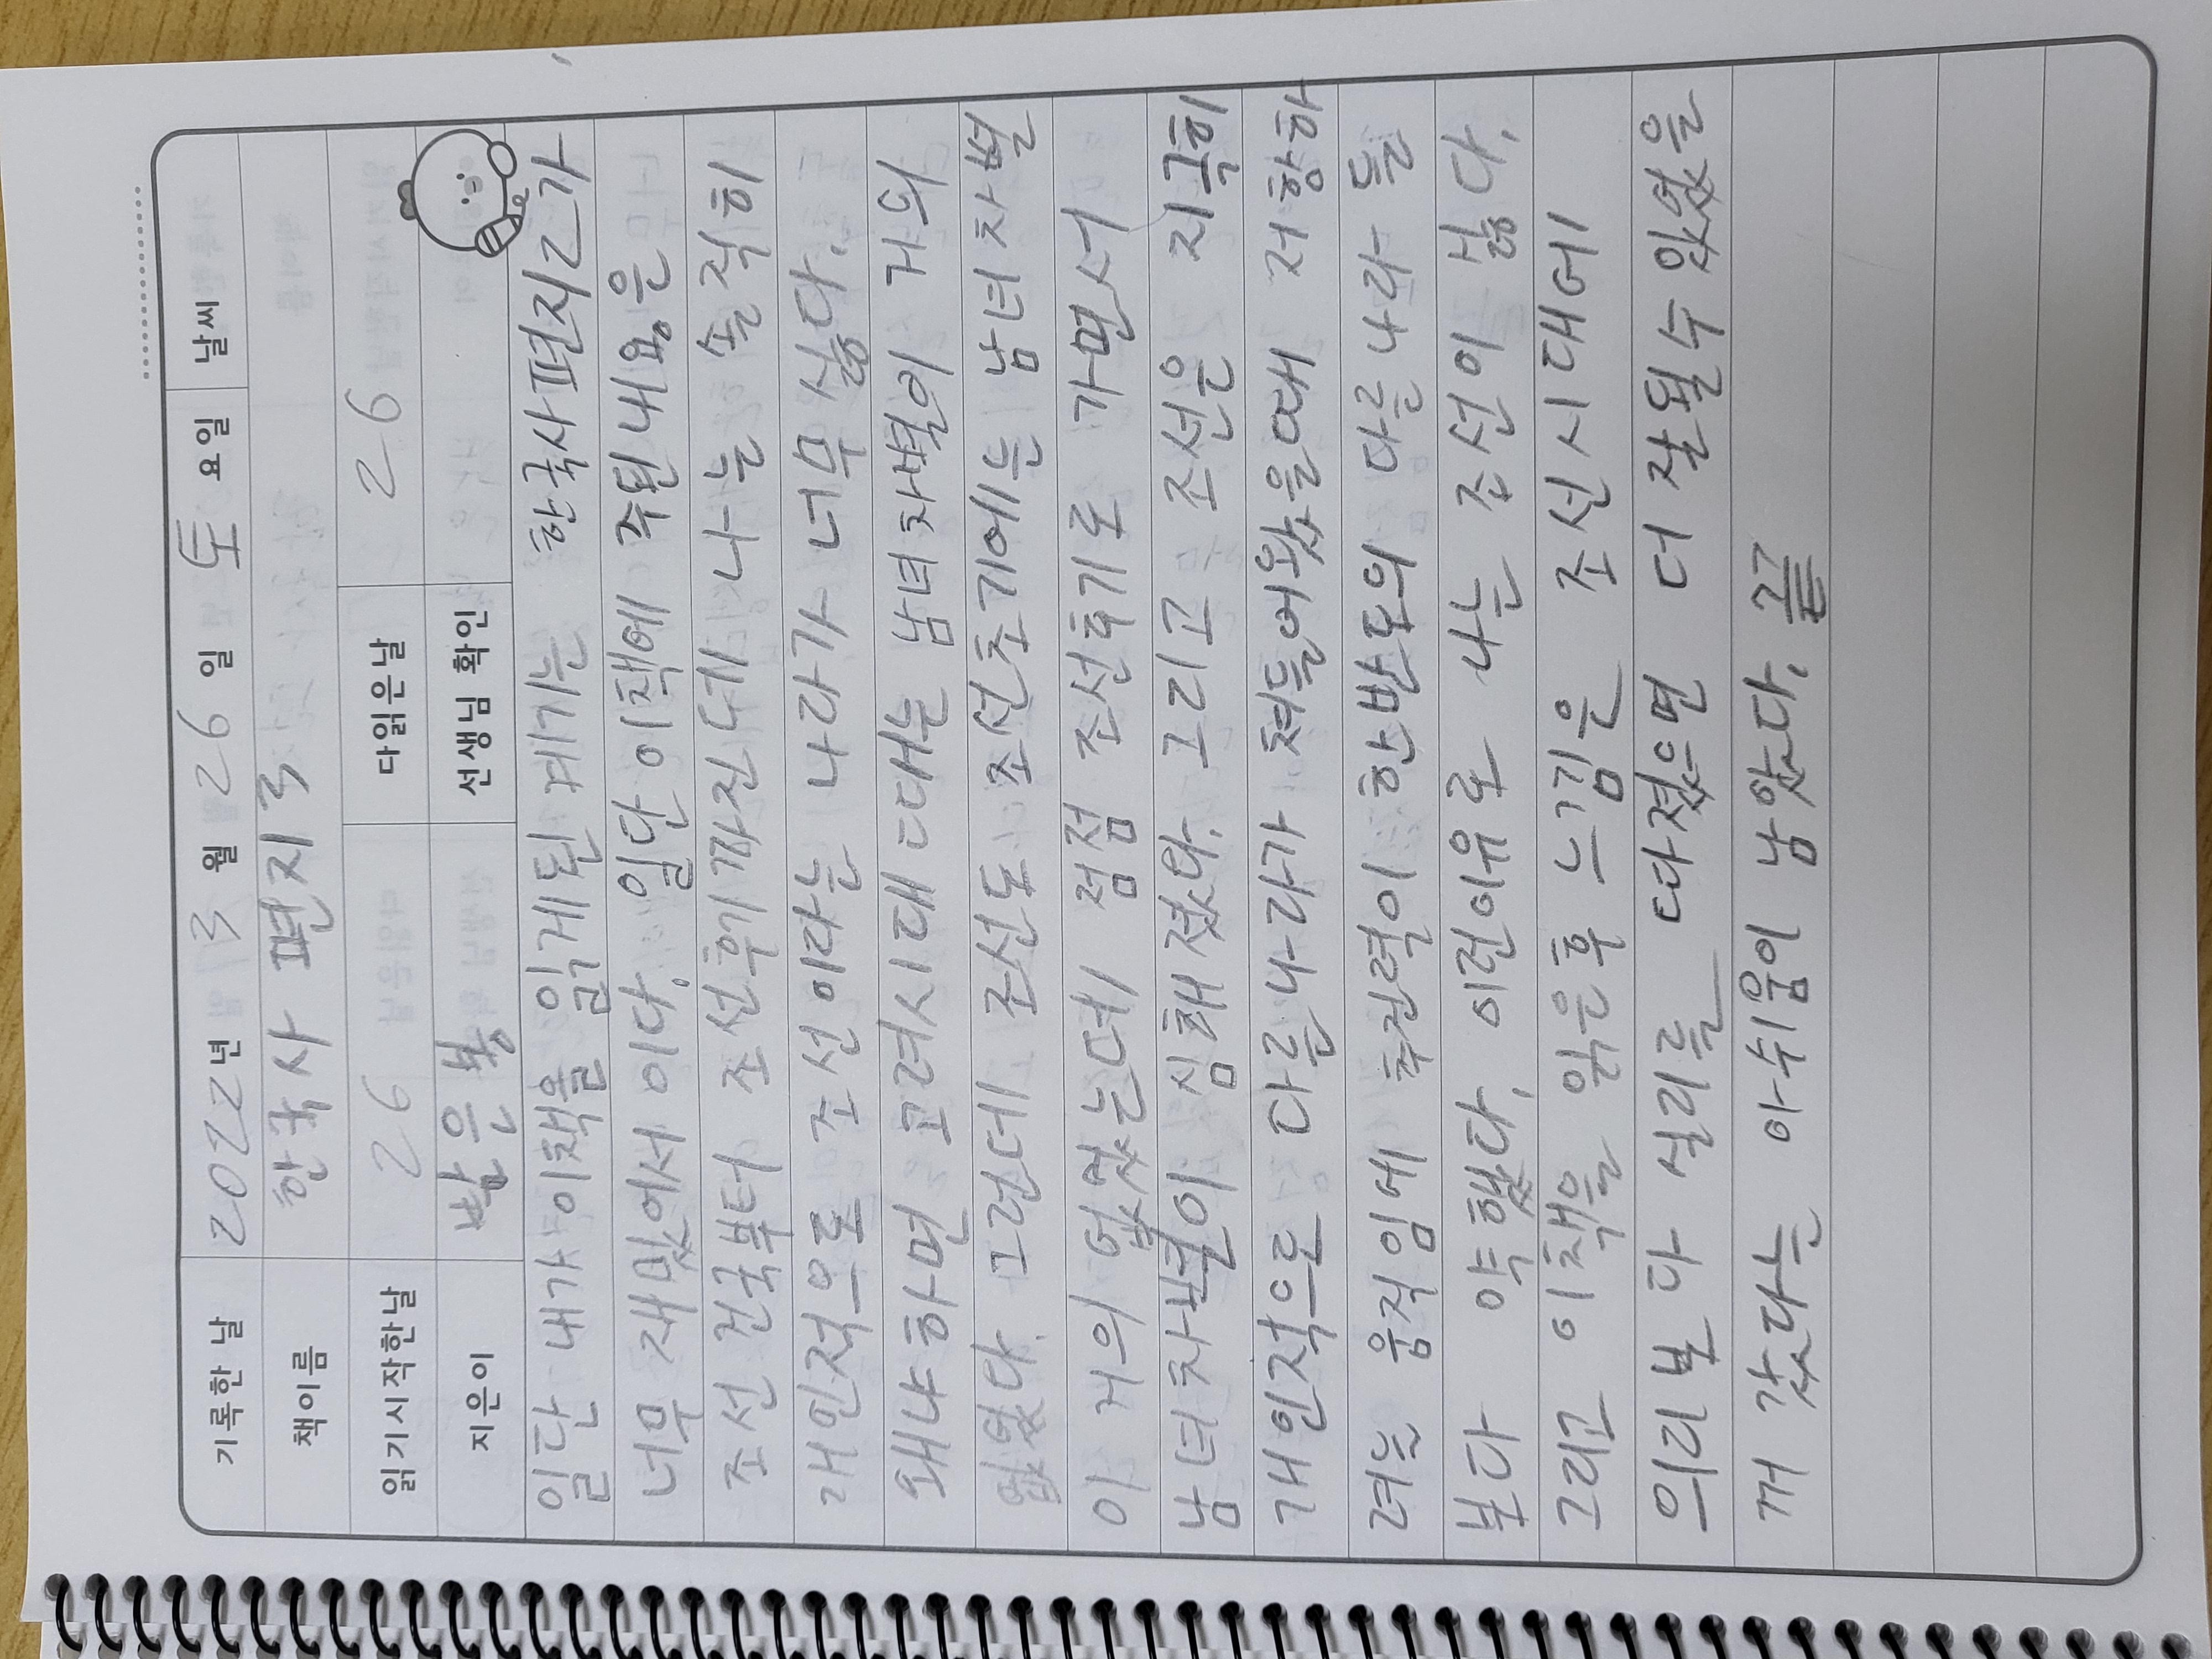 기록한 날 2022년 3월 26일 토요일 날씨
책이름 한국사 편지 3
읽기시작한날 26 다읽은날 26
지은이 박은봉 선생님 확인
일단 내가 이책을 읽게된 계기는 한국사편지2가
너무 재밌어서 이다. 일단 이책에 주된내용은
조선 건국부터 조선후기까진데 나는 솔직히
개인적으로 조선이라는 나라가 너무 싫다.
왜냐하면 고려시대 때는 남녀차별이 거의
없었다. 그런데 조선도 조선초기에는 남녀차별
이 거의 없었는데 점점 조선후기로 가면서
남녀차별이 심해졌다. 그리고 조선은 지극히
개인적으로 다른나라가 쳐들어왔을때 저항하
려는 움직임에 추진력이 한반도의 다른나라 들
보다 약했다. 이런이유로 나는 조선이 싫다.
그리고 이책을 읽은후 느낌은 조선시대에
의리보다 실리를 따졌으면 더 잘될수있었을
꺼 같았다는 아쉬움이 남았다. 끝